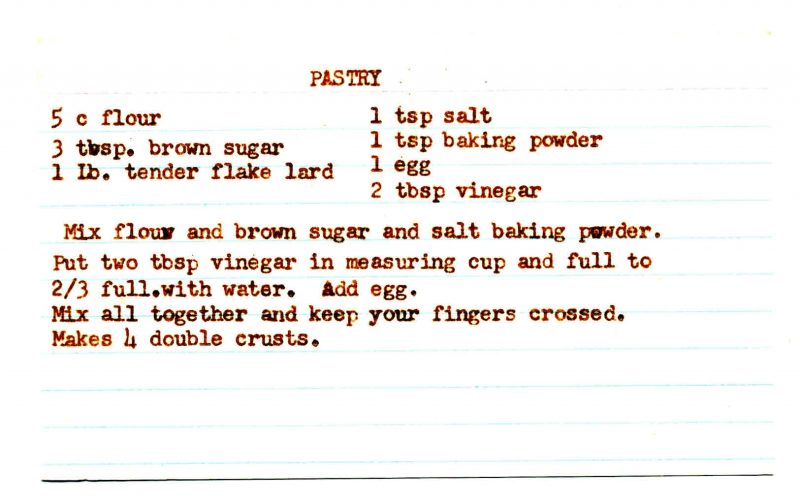 PASTRY
5 c flour
3 tbsp. brown sugar
1 lb. tender flake lard
1 tsp salt
1 tsp baking powder
1 egg
2 tbsp vinegar
Mix flour and brown sugar and salt baking powder.
Put two tbsp vinegar in measuring cup and full to
2/3 full.with water. Add egg.
Mix all together and keep your fingers crossed.
Makes 4 double crusts.